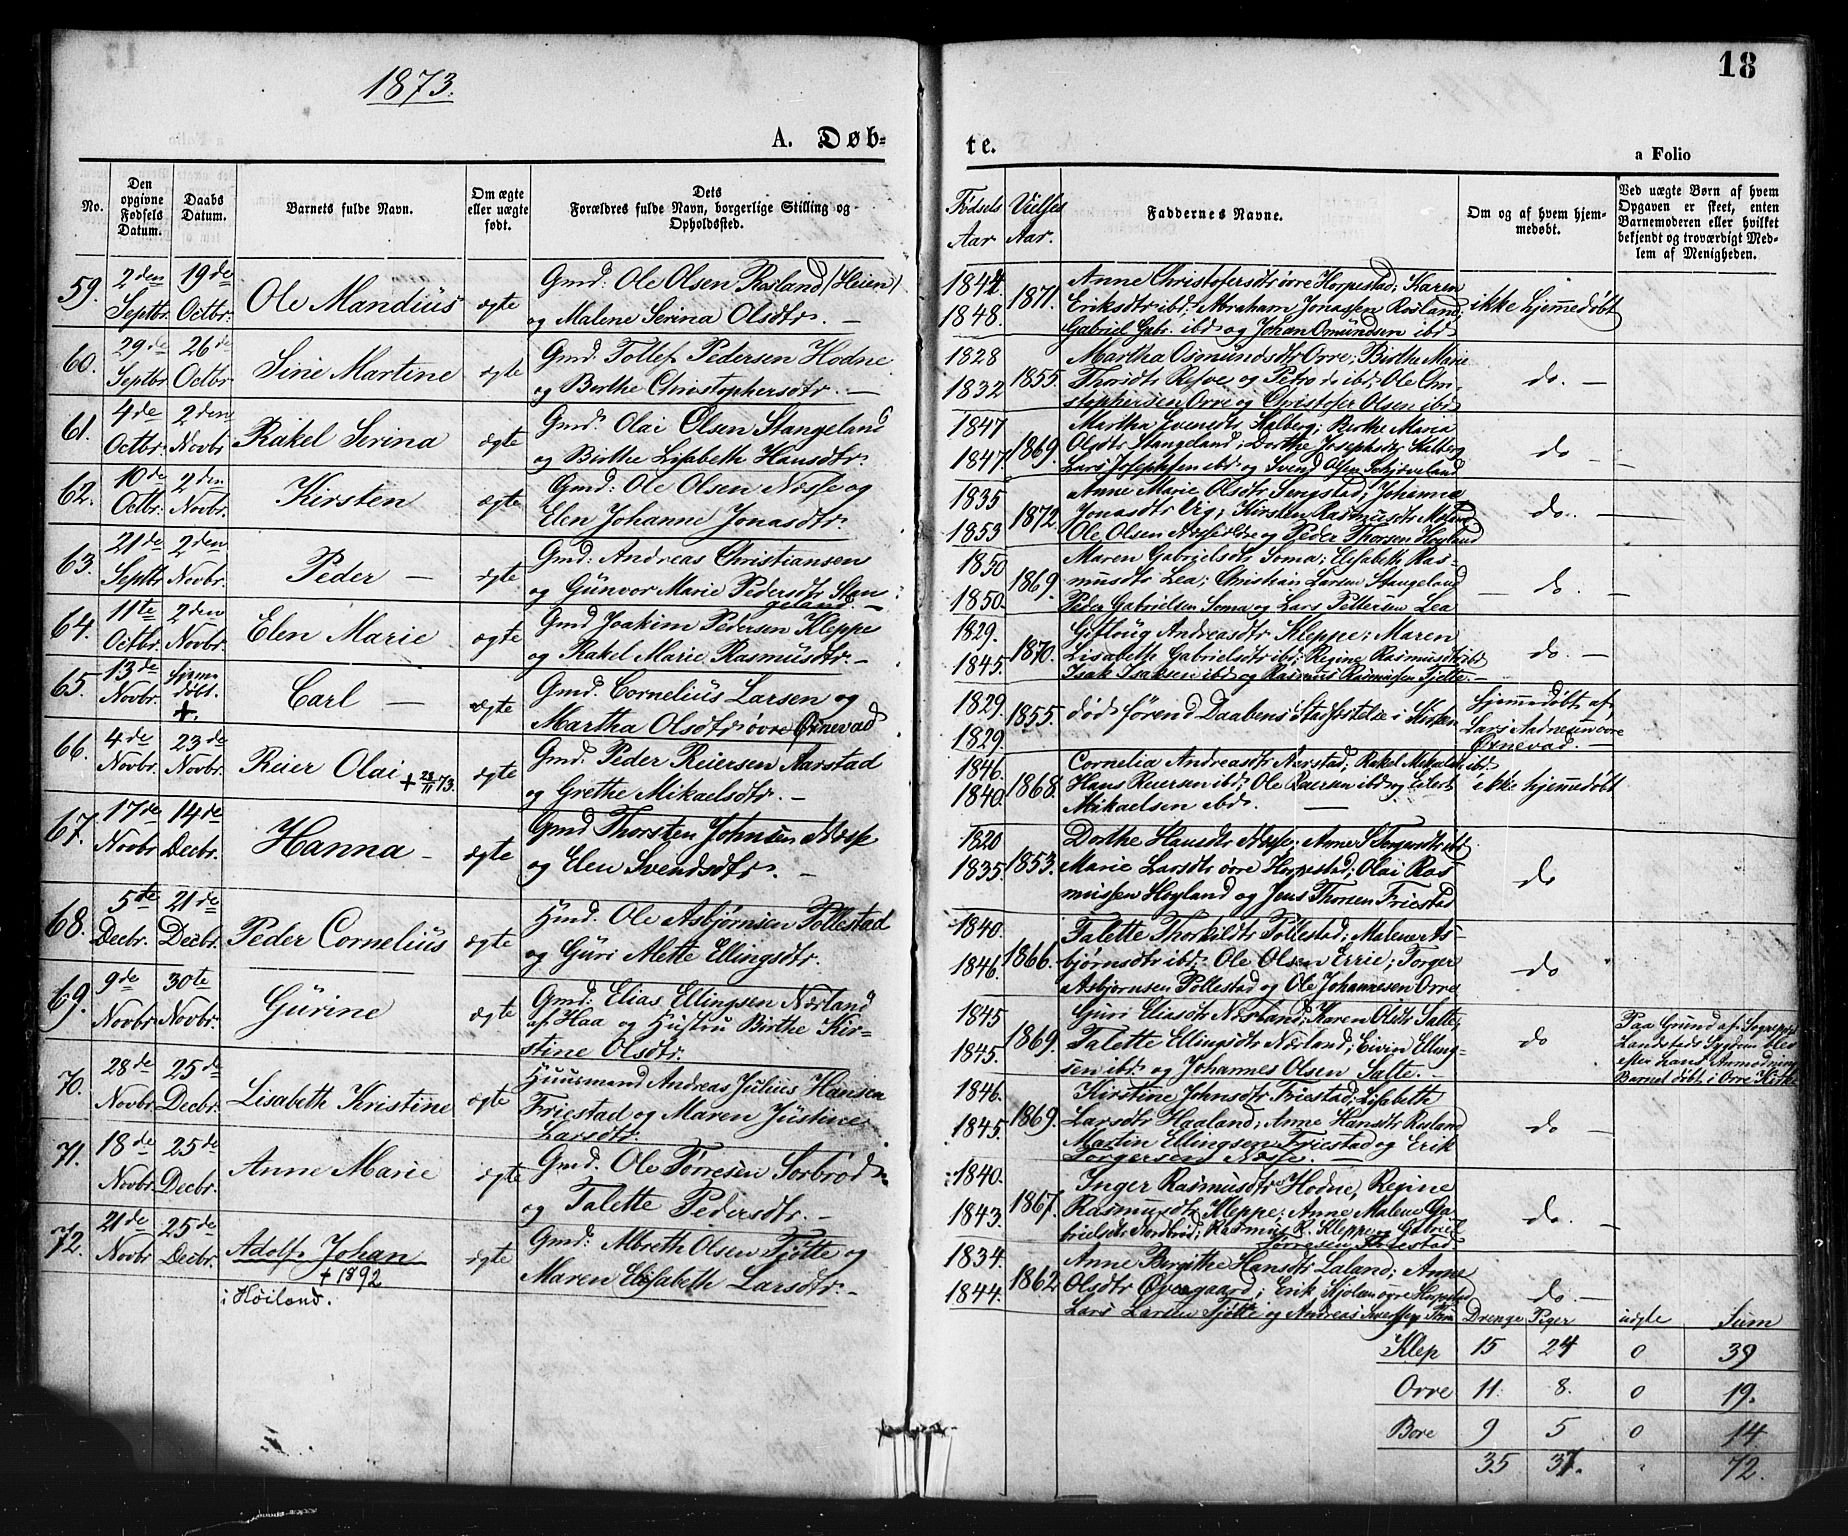 18
1873.
A. Døb-
te.
a Folio
No.
Den opgivne Fødsels Datum.
Daabs Datum.
Barnets fulde Navn.
Om ægte eller uægte født.
Dets
Forældres fulde Navn, borgerlige Stilling og
Opholdssted.
Fødsels Aar
Vielses Aar.
Faddernes Navne.
Om og af hvem hjem-
medøbt.
Ved uægte Børn af hvem
Opgaven er skeet, enten
Barnemoderen eller hvilket
bekjendt og troværdigt Med-
lem af Menigheden.
59. 2den Septbr. 19de Octbr. Ole Mandius ægte
Gmd: Ole Olsen Rosland (Heien)
og Malene Serina Olsdtr. —
1844 1848. 1871.
Anne Christofersdtr øvre Horpestad; Karen
Eriksdtr ibd; Abraham Jonassen Rosland;
Gabriel Gabr. ibd og Johan Osmundsen ibd
ikke hjemmedøbt
60. 29de Septbr. 26de Octbr. Sine Martine ægte
Gmd. Tollef Pedersen Hodne
og Berthe Christophersdtr. —
1828 1832 1855.
Martha Osmundsdtr Orre; Birthe Marie
Thorsdtr Refve og Petro do ibd; Ole Chri-
stophersen Orre og Christofer Olsen ibd
do. —
61. 4de Octbr. 2den Novbr Rakel Serina ægte
Gmd. Olai Olsen Stangeland
og Birthe Lisabeth Hansdtr.
1847 1847. 1869.
Martha Evensdtr Kalberg; Birthe Maria
Olsdtr Stangeland; Dorthe Josephsdtr Kalberg
Lars Josephsen ibd og Svend Olsen Schjæveland
do —
62. 10de Octbr. 2den Novbr. Kirsten ægte
Gmd: Ole Olsen Næsse og
Elen Johanne Jonasdtr.
1835 1853 1872
Anne Marie Olsdtr Jonasdtr Vig; Kirsten Rasmusdtr
Ole Olsen Næsse og Peder Thorsen Høyland
do. —
63. 21de Septbr 2den Novbr. Peder — ægte
Gmd: Andreas Christiansen
og Gunvor Marie Pedersdtr Stan-
geland. —
1850 1850. 1869.
Maren Gabrielsdtr Soma; Elisabeth Ras-
musdtr Lea; Christian Larsen Stangeland
Peder Gabrielsen Soma og Lars Pettersen Lea
do —
64. 11te Octbr. 2den Novbr. Elen Marie ægte
Gmd Joakim Pedersen Kleppe
og Rakel Marie Rasmusdtr. —
1829. 1845. 1870.
Giftloug Andreasdtr Kleppe; Maren
Lisabeth Gabrielsdtr ibd; Regine Rasmusdtr ibd
Isak Isaksen ibd og Rasmus Rasmussen Tjelte —
do. —
65. 13de Novbr. Hjemmedøbt. +. Carl — ægte
Gmd. Cornelius Larsen og
Martha Olsdtr. øvre Ørnevad
1829. 1829. 1855.
død førend Daabens Stadfæstelse i Kirken
Hjemmedøbt af
Lars Aadnesen øvre
Ørnevad. —
66. 4de Novbr. 23de Novbr. Reier Olai + 28/11 73. ægte
Gmd. Peder Reiersen Aarstad
og Grethe Mikaelsdtr. —
1846. 1840. 1868.
Cornelia Andreasdtr Aarstad; Rakel Mikalsdtr ibd.
Hans Reiersen ibd; Ole Reiersen ibd og Eilert
Mikaelsen ibd. —
ikke hjemmedøbt
67. 17de Novbr 14de Decbr. Hanna — ægte
Gmd Thorsten Johnsen Næsse
og Elen Svendsdtr. —
1820 1835. 1853.
Dorthe Hansdtr Næsse; Anne S. Torgersdtr ibd
Marie Larsdtr øvre Horpestad; Olai Ras-
mussen Hoyland og Jens Thorsen Friestad
do
68. 5te Decbr. 21de Decbr. Peder Cornelius ægte
Hmd. Ole Asbjørnsen Pollestad
og Guri Alette Ellingsdtr.
1840. 1846. 1866.
Talette Thorkildtr Pollestad; Malene As-
bjørnsdtr ibd. Ole Olsen Errie; Torger
Asbjørnsen Pollestad og Ole Johannesen Orre
do
69. 9de Novbr. 30te Novbr. Gurine ægte
Gmd: Elias Ellingsen Nærland
af Haa og Hustru Birthe Kir-
stine Olsdtr.
1845 1845. 1869.
Guri Eliasdtr Nærland; Karen Olsdtr Salte;
Talette Ellingsdtr Nærland; Eivin Elling-
sen ibd. og Johannes Olsen Salte. —
do
Paa Grund af Sogneprest
Landsteds Sygdom blev
efter Anmodning
Barnet døbt i Orre Kirke
70. 28de Novbr. 25de Decbr. Lisabeth Kristine ægte
Huusmand Andreas Julius Hansen
Friestad og Maren Justine
Larsdtr.
1846. 1845. 1869.
Kirstine Johnsdtr Friestad; Lisabeth
Larsdtr Haaland; Anne Hansdtr Rosland
Martin Ellingsen Friestad og Erik
Torgersen Næsse. —
do —
71. 18de Novbr. 25de Decbr. Anne Marie ægte
Gmd. Ole Tørresen Sorbrød
og Talette Pedersdtr. —
1840. 1843. 1867.
Inger Rasmusdtr Hodne; Regine
Rasmusdtr Kleppe; Anne Malene Ga-
brielsdtr Nordbrød; Rasmus R. Kleppe og Gabriel
Tørresen Tholestad.
do. —
72. 21de Novbr 25de Decbr. Adolf Johan ægte
+ 1892
i Høiland.
Gmd: Albreth Olsen Tjøtte og
Maren Elisabeth Larsdtr. —
1834. 1844. 1862
Anne Birgithe Hansdtr Laland; Anne
Olsdtr Øvregaard; Erik Kjolsen øvre Horpestad
Lars Larsen Tjøtte og Andreas
do. —
Drenge Piger uægte Sum
Klep 15 24 0 39
Orre 11. 8. 0 19.
Bore 9 5 0 14
35 37. " 72.